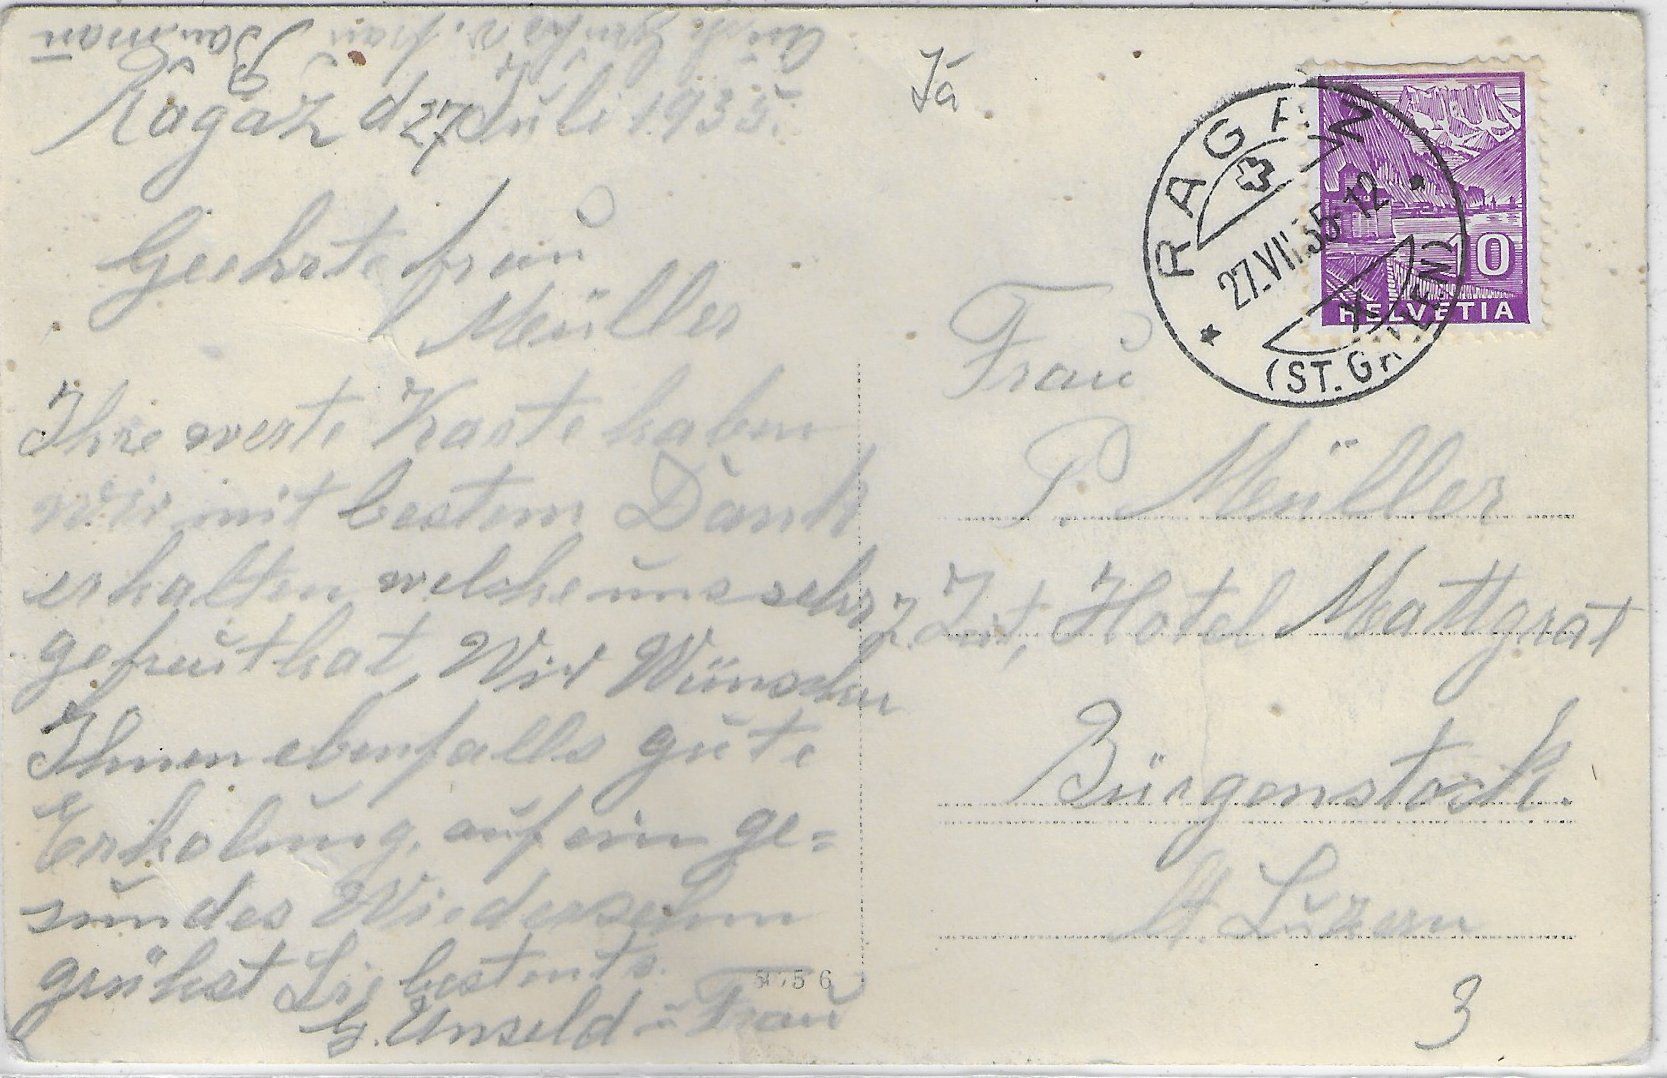 Auch Grüße v. Frau Bauman
Ragaz d 27 Juli 1935.
Geehrte Frau
Müller
Ihre werte Karte haben
wir mit bestem Dank
erhalten welche uns sehr
gefreut hat, Wir Wünschen
Ihnen ebenfalls gute
Erholung, auf ein ge=
sundes Wiedersehn
grüßst Sie bestents.
G. Unseld u Frau
54756
Ja
RAGAZ
27.VII.35-12
(ST. GALLEN)
10
HELVETIA
Frau
P. Müller
z Zt, Hotel Mattgrat
Bürgenstock.
Kt. Luzern
3